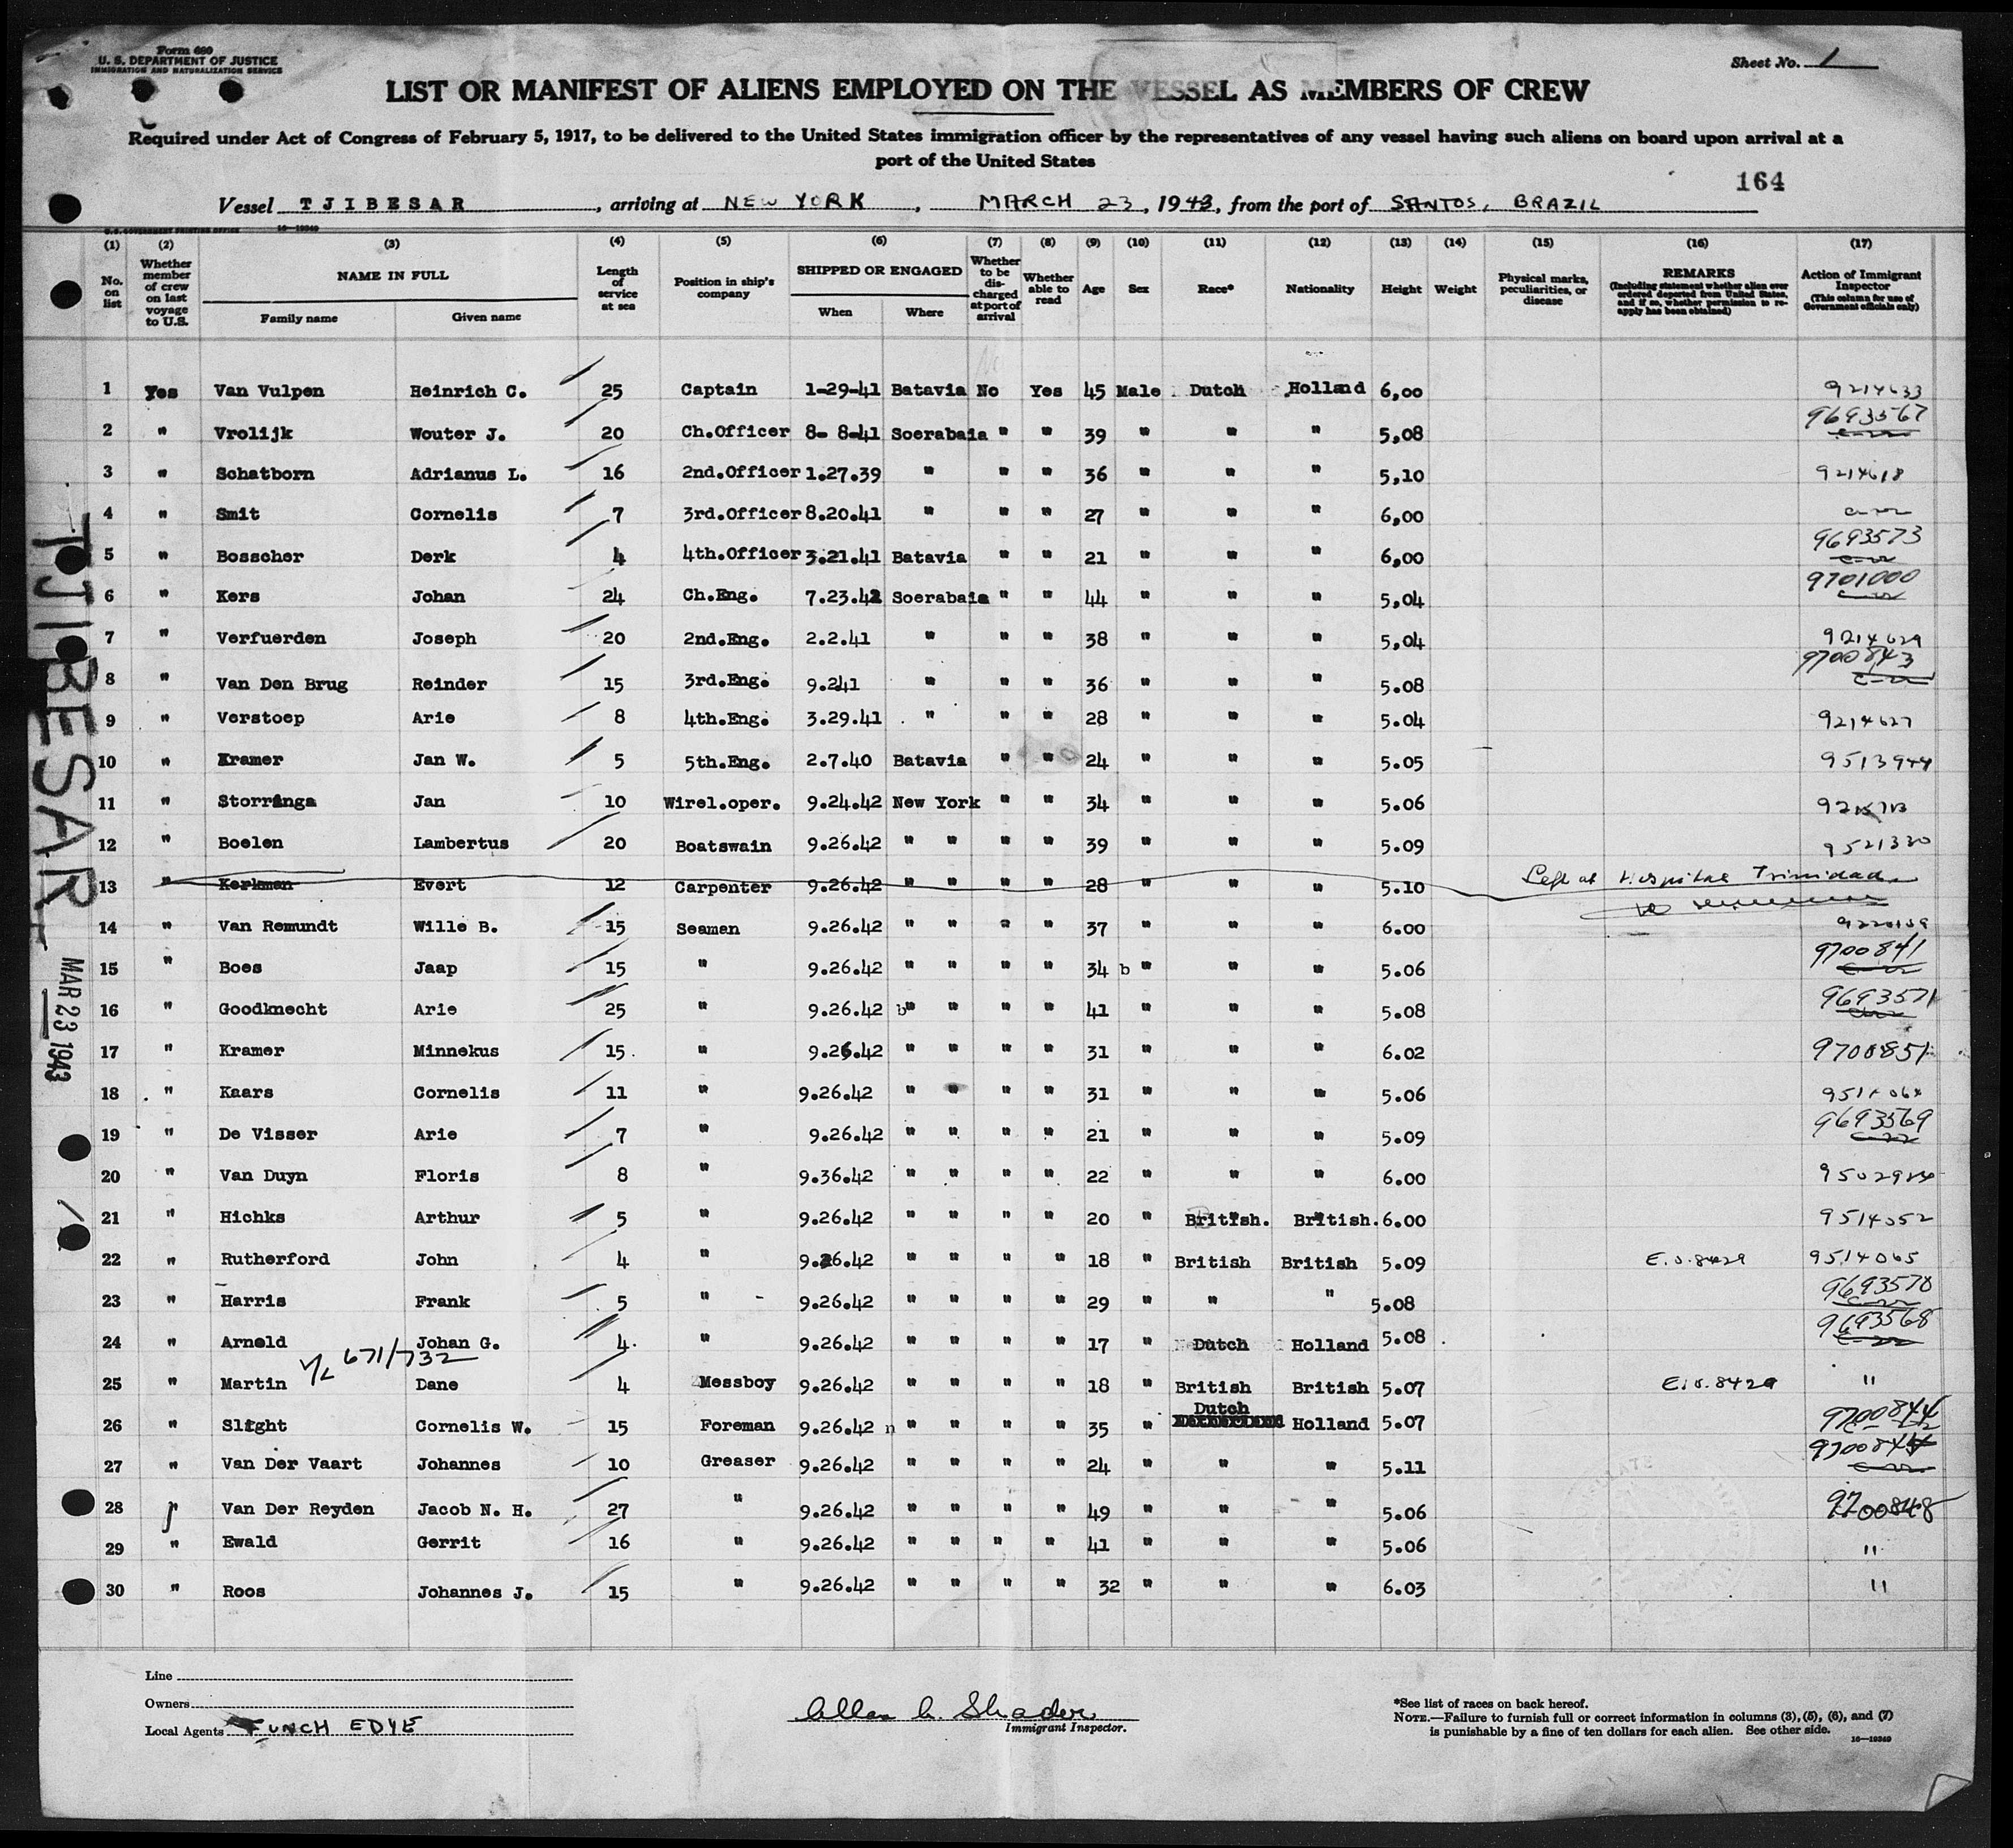 Form 680
U. S. DEPARTMENT OF JUSTICE
IMMIGRATION AND NATURALIZATION SERVICE
Sheet No. 1
LIST OR MANIFEST OF ALIENS EMPLOYED ON THE VESSEL AS MEMBERS OF CREW
Required under Act of Congress of February 5, 1917, to be delivered to the United States immigration officer by the representatives of any vessel having such aliens on board upon arrival at a
port of the United States
164
Vessel TJIBESAR, arriving at NEW YORK, MARCH 23, 1943, from the port of SANTOS, BRAZIL
U.S. GOVERNMENT PRINTING OFFICE 16—19349
(1) (2) (3) (4) (5) (6) (7) (8) (9) (10) (11) (12) (13) (14) (15) (16) (17)
No. on list
Whether member of crew on last voyage to U.S.
NAME IN FULL
Family name Given name
Length of service at sea
Position in ship's company
SHIPPED OR ENGAGED
When Where
Whether to be discharged at port of arrival
Whether able to read
Age Sex Race* Nationality Height Weight
Physical marks, peculiarities, or disease
REMARKS
(Including statement whether alien ever ordered deported from United States, and if so, whether permission to reapply has been obtained)
Action of Immigrant Inspector
(This column for use of Government officials only)
1 Yes Van Vulpen Heinrich C. 25 Captain 1-29-41 Batavia No Yes 45 Male Dutch Holland 6,00 9214633
2 " Vrolijk Wouter J. 20 Ch.Officer 8- 8-41 Soerabaia " " 39 " " " 5,08 9693567
3 " Schatborn Adrianus L. 16 2nd.Officer 1.27.39 " " " 36 " " " 5,10 9214618
4 " Smit Cornelis 7 3rd.Officer 8.20.41 " " " 27 " " " 6,00
5 " Bosscher Derk 4 4th.Officer 3.21.41 Batavia " " 21 " " " 6,00 9693573
6 " Kers Johan 24 Ch.Eng. 7.23.42 Soerabaia " " 44 " " " 5,04 9701000
7 " Verfuerden Joseph 20 2nd.Eng. 2.2.41 " " " 38 " " " 5,04 9214629
8 " Van Den Brug Reinder 15 3rd.Eng. 9.241 " " " 36 " " " 5.08 9700843
9 " Verstoep Arie 8 4th.Eng. 3.29.41 " " " 28 " " " 5.04 9214627
10 " Kramer Jan W. 5 5th.Eng. 2.7.40 Batavia " " 24 " " " 5.05 9513944
11 " Storringa Jan 10 Wirel.oper. 9.24.42 New York " " 34 " " " 5.06
12 " Boelen Lambertus 20 Boatswain 9.26.42 " " " " 39 " " " 5.09 9521330
13 " Kerkman Evert 12 Carpenter 9.26.42 " " " " 28 " " " 5.10 Left at Hospital Trinidad
14 " Van Remundt Wille B. 15 Seaman 9.26.42 " " " " 37 " " " 6.00
15 " Boes Jaap 15 " 9.26.42 " " " " 34 b " " " 5.06 9700841
16 " Goodknecht Arie 25 " 9.26.42 b" " " " 41 " " " 5.08 9693571
17 " Kramer Minnekus 15. " 9.26.42 " " " " 31 " " " 6.02 9700851
18 " Kaars Cornelis 11 " 9.26.42 " " " " 31 " " " 5.06
19 " De Visser Arie 7 " 9.26.42 " " " " 21 " " " 5.09 9693569
20 " Van Duyn Floris 8 " 9.36.42 " " " " 22 " " " 6.00
21 " Hichks Arthur 5 " 9.26.42 " " " " 20 " British. British. 6.00 9514052
22 " Rutherford John 4 " 9.26.42 " " " " 18 " British British 5.09 E.O.8429 9514065
23 " Harris Frank 5 " - 9.26.42 " " " " 29 " " " 5.08 9693570
24 " Arnold Johan G. 4. " 9.26.42 " " " " 17 " Dutch Holland 5.08 9693568
671/732
25 " Martin Dane 4 Messboy 9.26.42 " " " " 18 " British British 5.07 E.O.8429 "
26 " Slight Cornelis W. 15 Foreman 9.26.42 n " " " " 35 " Dutch Holland 5.07 9700844
27 " Van Der Vaart Johannes 10 Greaser 9.26.42 " " " " 24 " " " 5.11
28 " Van Der Reyden Jacob N. H. 27 " 9.26.42 " " " " 49 " " " 5.06 9700848
29 " Ewald Gerrit 16 " 9.26.42 " " " " 41 " " " 5.06 "
30 " Roos Johannes J. 15 " 9.26.42 " " " " 32 " " " 6.03 "
TJIBESAR
MAR 23 1943
Line
Owners
Local Agents FUNCH EDYE
Immigrant Inspector.
*See list of races on back hereof.
NOTE.—Failure to furnish full or correct information in columns (3), (5), (6), and (7)
is punishable by a fine of ten dollars for each alien. See other side.
16—19349